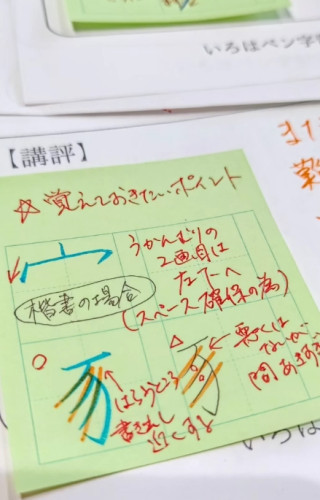 いろはペン字
【講評】
☆覚えておきたいポイント
うかんむりの
2画目は
左下へ
(スペース確保の為)
楷書の場合
また
○
はらうところ
書き出し
近くすと
△
悪くは
ないが、
間あきすぎ